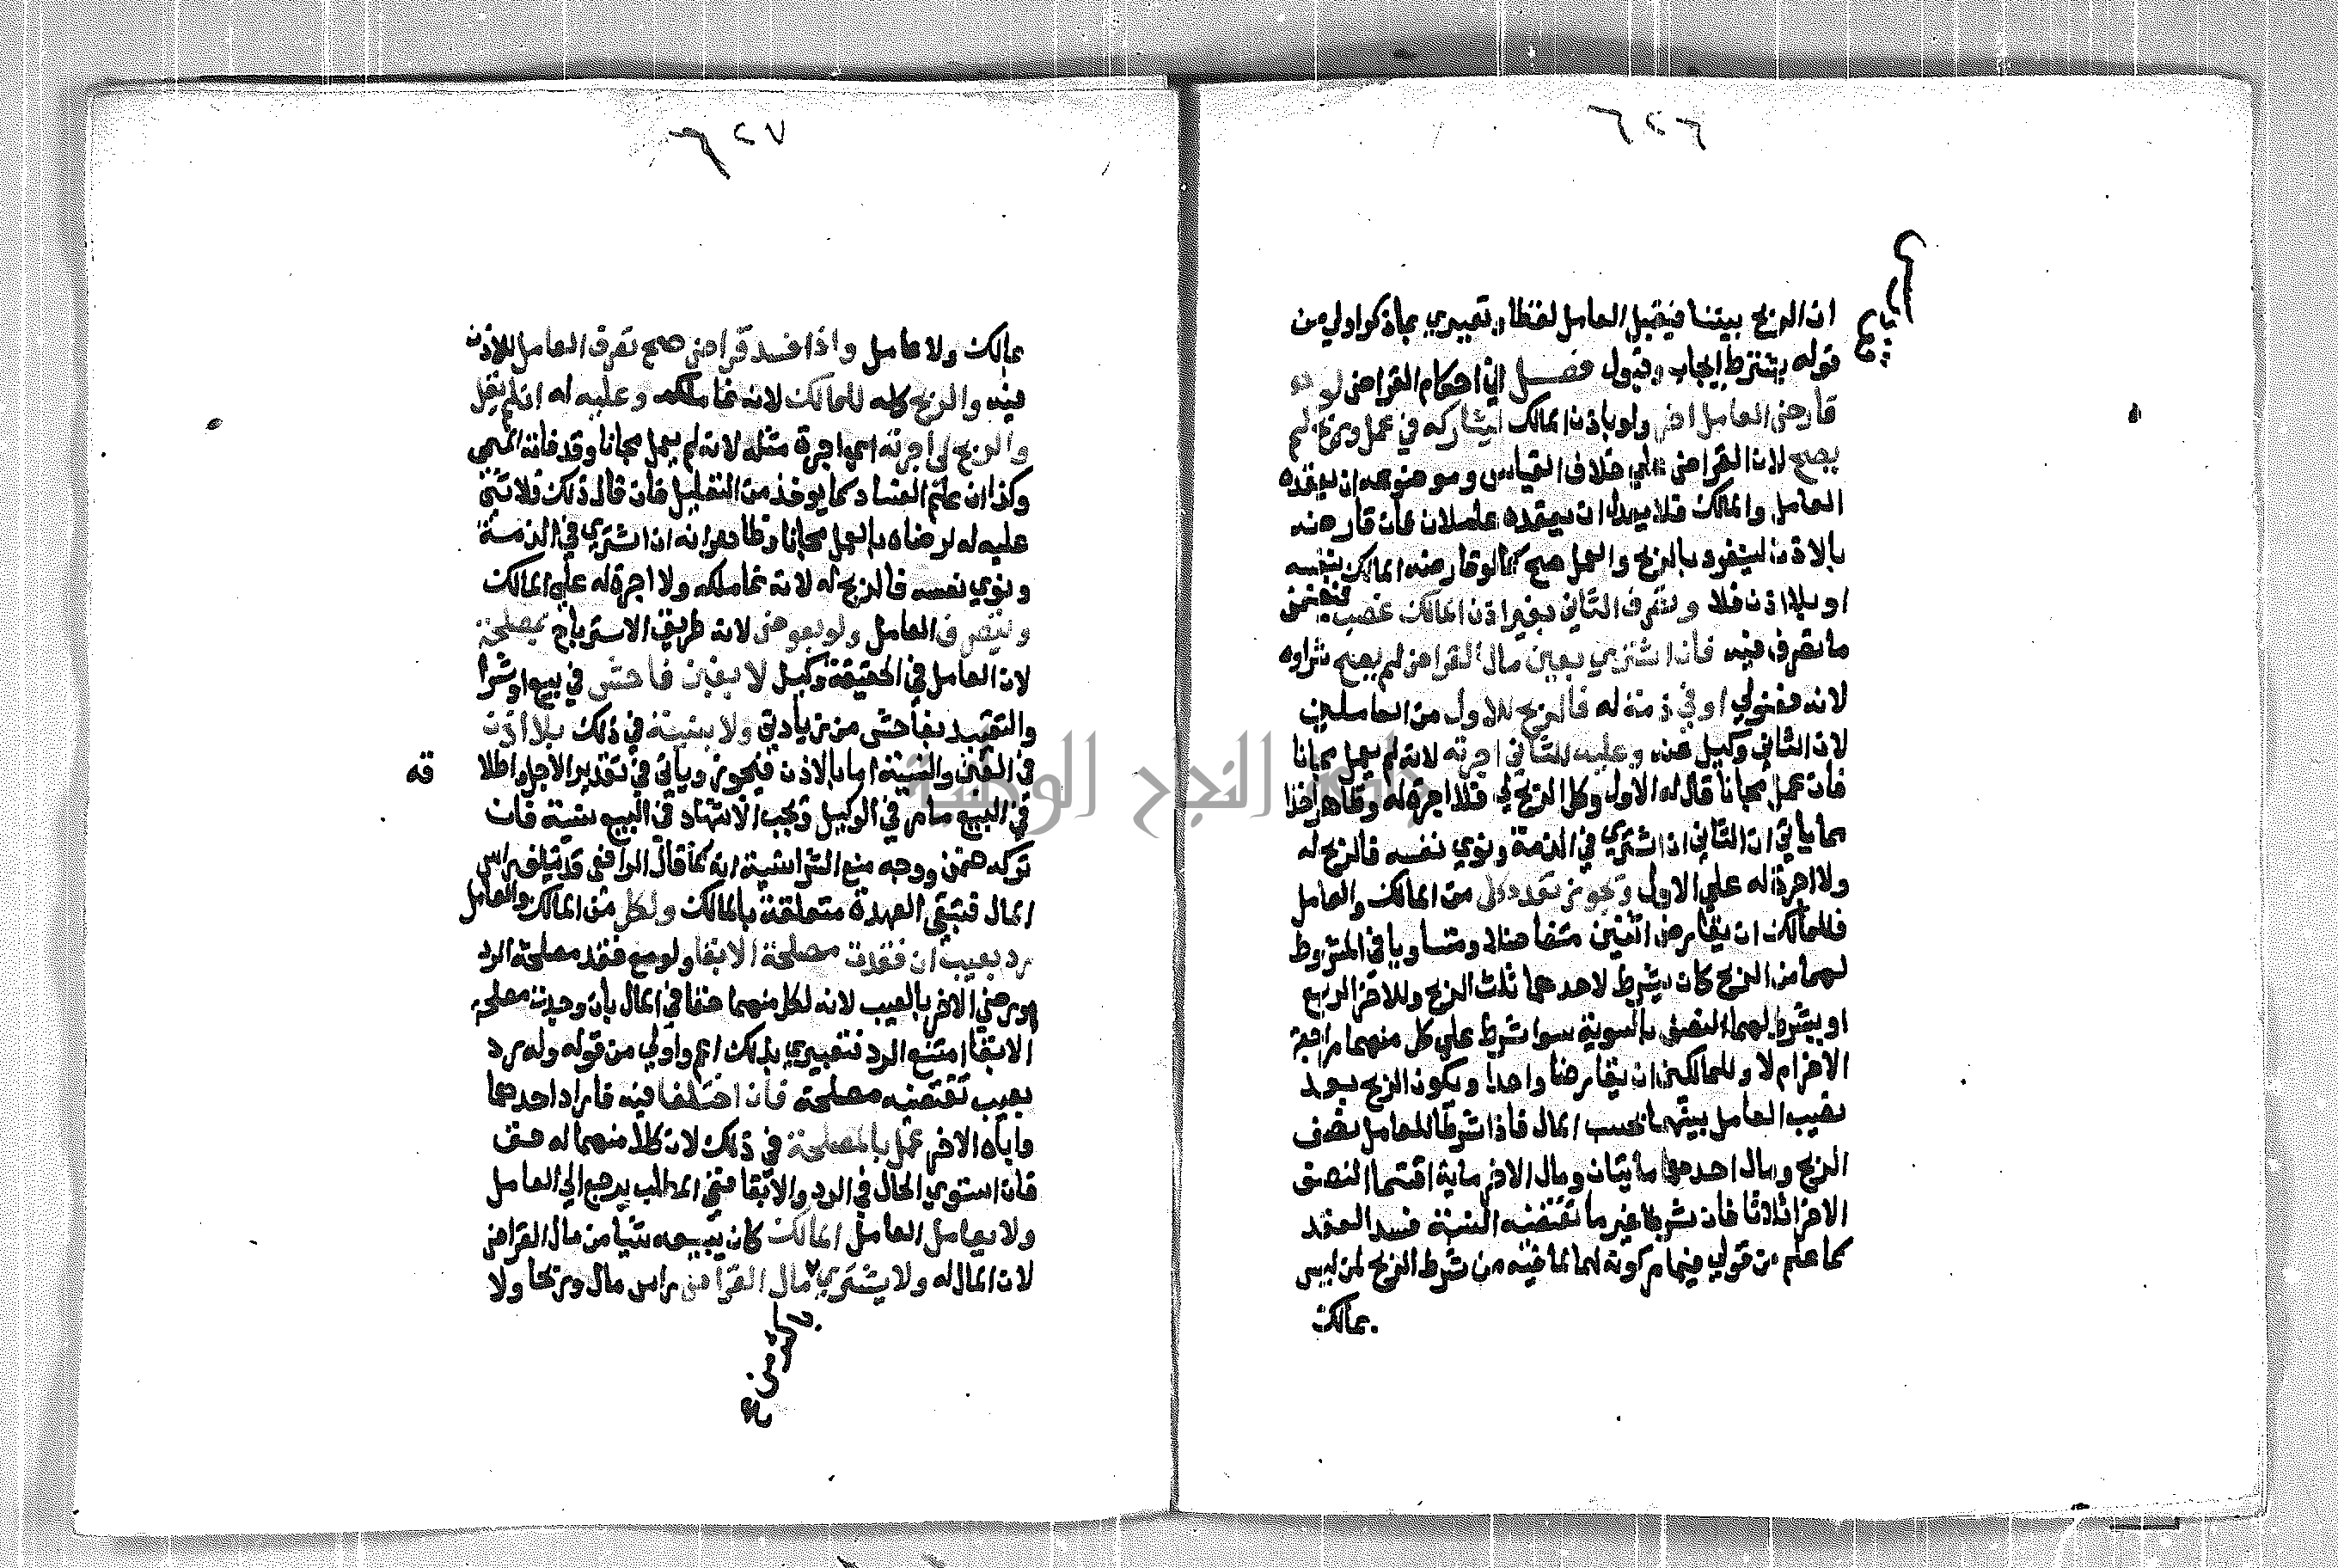 ٦٢٦
ان الربح بيننا فيقبل العامل لفظا وتعبيري بماذكر اولي من
قوله يشترط ايجاب وقبول فصل في احكام القراض لو
قارض العامل اخر ولو باذن المالك ليشاركه في عمل وربح لم
يصح لان القراض علي خلاف القياس وموضوعه ان يعقده
العامل والمالك فلا يعدل ان يعقده عاملان فان قارضه
بالاذن لينفرد بالربح والعمل صح كما لو قارضه المالك بنفسه
او بلا اذن فلا وتصرف الثاني بغير اذن المالك غصب فيضمن
ما تصرف فيه فان اشتري بعين مال القراض لم يصح شراوه
لانه فضولي او في ذمة له فالربح للاول من العاملين
لان الثاني وكيل عنه وعليه للثاني اجرته لانه لم يعمل مجانا
فان عمل مجانا قال له الاول وكل الربح لي فلا اجرة له وظاهر اخذا
مما ياتي ان الثاني ان اشتري في الذمة ونوي نفسه فالربح له
ولا اجرة له علي الاول ويجوز تعدد كل من المالك والعامل
فللمالك ان يقارض اثنين متفاضلا ومتساويا في المشروط
لهما من الربح كان يشرط لاحدهما ثلث الربح وللاخر الربع
او يشرط لهما النصف بالسوية سوا شرط علي كل منهما مراجعة
الاخر ام لا وللمالكين ان يقارضا واحدا ويكون الربح بعد
نصيب العامل بينهما بحسب المال فاذا شرطا للعامل نصف
الربح ومال احدهما مايتان ومال الاخر ماية اقتسما النصف
الاخر اثلاثا فان شرطا غير ما تقتضيه النسبة فسد العقد
كما علم من قولي فيما مر كونه لهما لما فيه من شرط الربح لمن ليس
بمالك
٦٢٧
بمالك ولا عامل واذا فسد قراض صح تصرف العامل للاذن
فيه والربح كله للمالك لانه نما ملكه وعليه له ان لم يقل
والربح لي اجرته اي اجرة مثله لانه لم يعمل مجانا وقد فاته المسمي
وكذا ان علم الفساد كما يوخذ من التعليل فان قال ذلك فلا شي
عليه له لرضاه بالعمل مجانا وظاهر انه ان اشتري في الذمة
ونوي نفسه فالربح له لانه نما ملكه ولا اجرة له علي المالك
ويتصرف العامل ولو بعرض لانه طريق الاسترباح بمصلحة
لان العامل في الحقيقة وكيل لا بغبن فاحش في بيع او شرا
والتقييد بفاحش من زيادتي ولا بنسيئة في ذلك بلا اذن
في الغبن والنسية اما بالاذن فيجوز وياتي في تقدير الاجل واطلا
قه
في البيع ما مر في الوكيل ويجب الاشهاد في البيع بنسية فان
تركه ضمن ووجه منع الشرا نسية انه كما قال الرافعي قد يتلف راس
المال فتبقي العهدة متعلقة بالمالك ولكل من المالك والعامل
رد بعيب ان فقدت مصلحة الابقا ولو مع فقد مصلحة الرد
ورضي الاخر بالعيب لانه لكل منهما حقا في المال فان وجدت مصلحة
الابقا امتنع الرد فتعبيري بذلك اعم واولي من قوله وله رد
بعيب تقتضيه مصلحة فان اختلفا فيه فاراد احدهما
واباه الاخر عمل بالمصلحة في ذلك لان كلا منهما له حق
فان استوي الحال في الرد والابقا ففي المطلب يرجع الي العامل
ولا يعامل العامل المالك كان يبيعه شيا من مال القراض
لان المال له ولا يشتري بمال القراض راس مال وربحا ولا
جامعة النجاح الوطنية